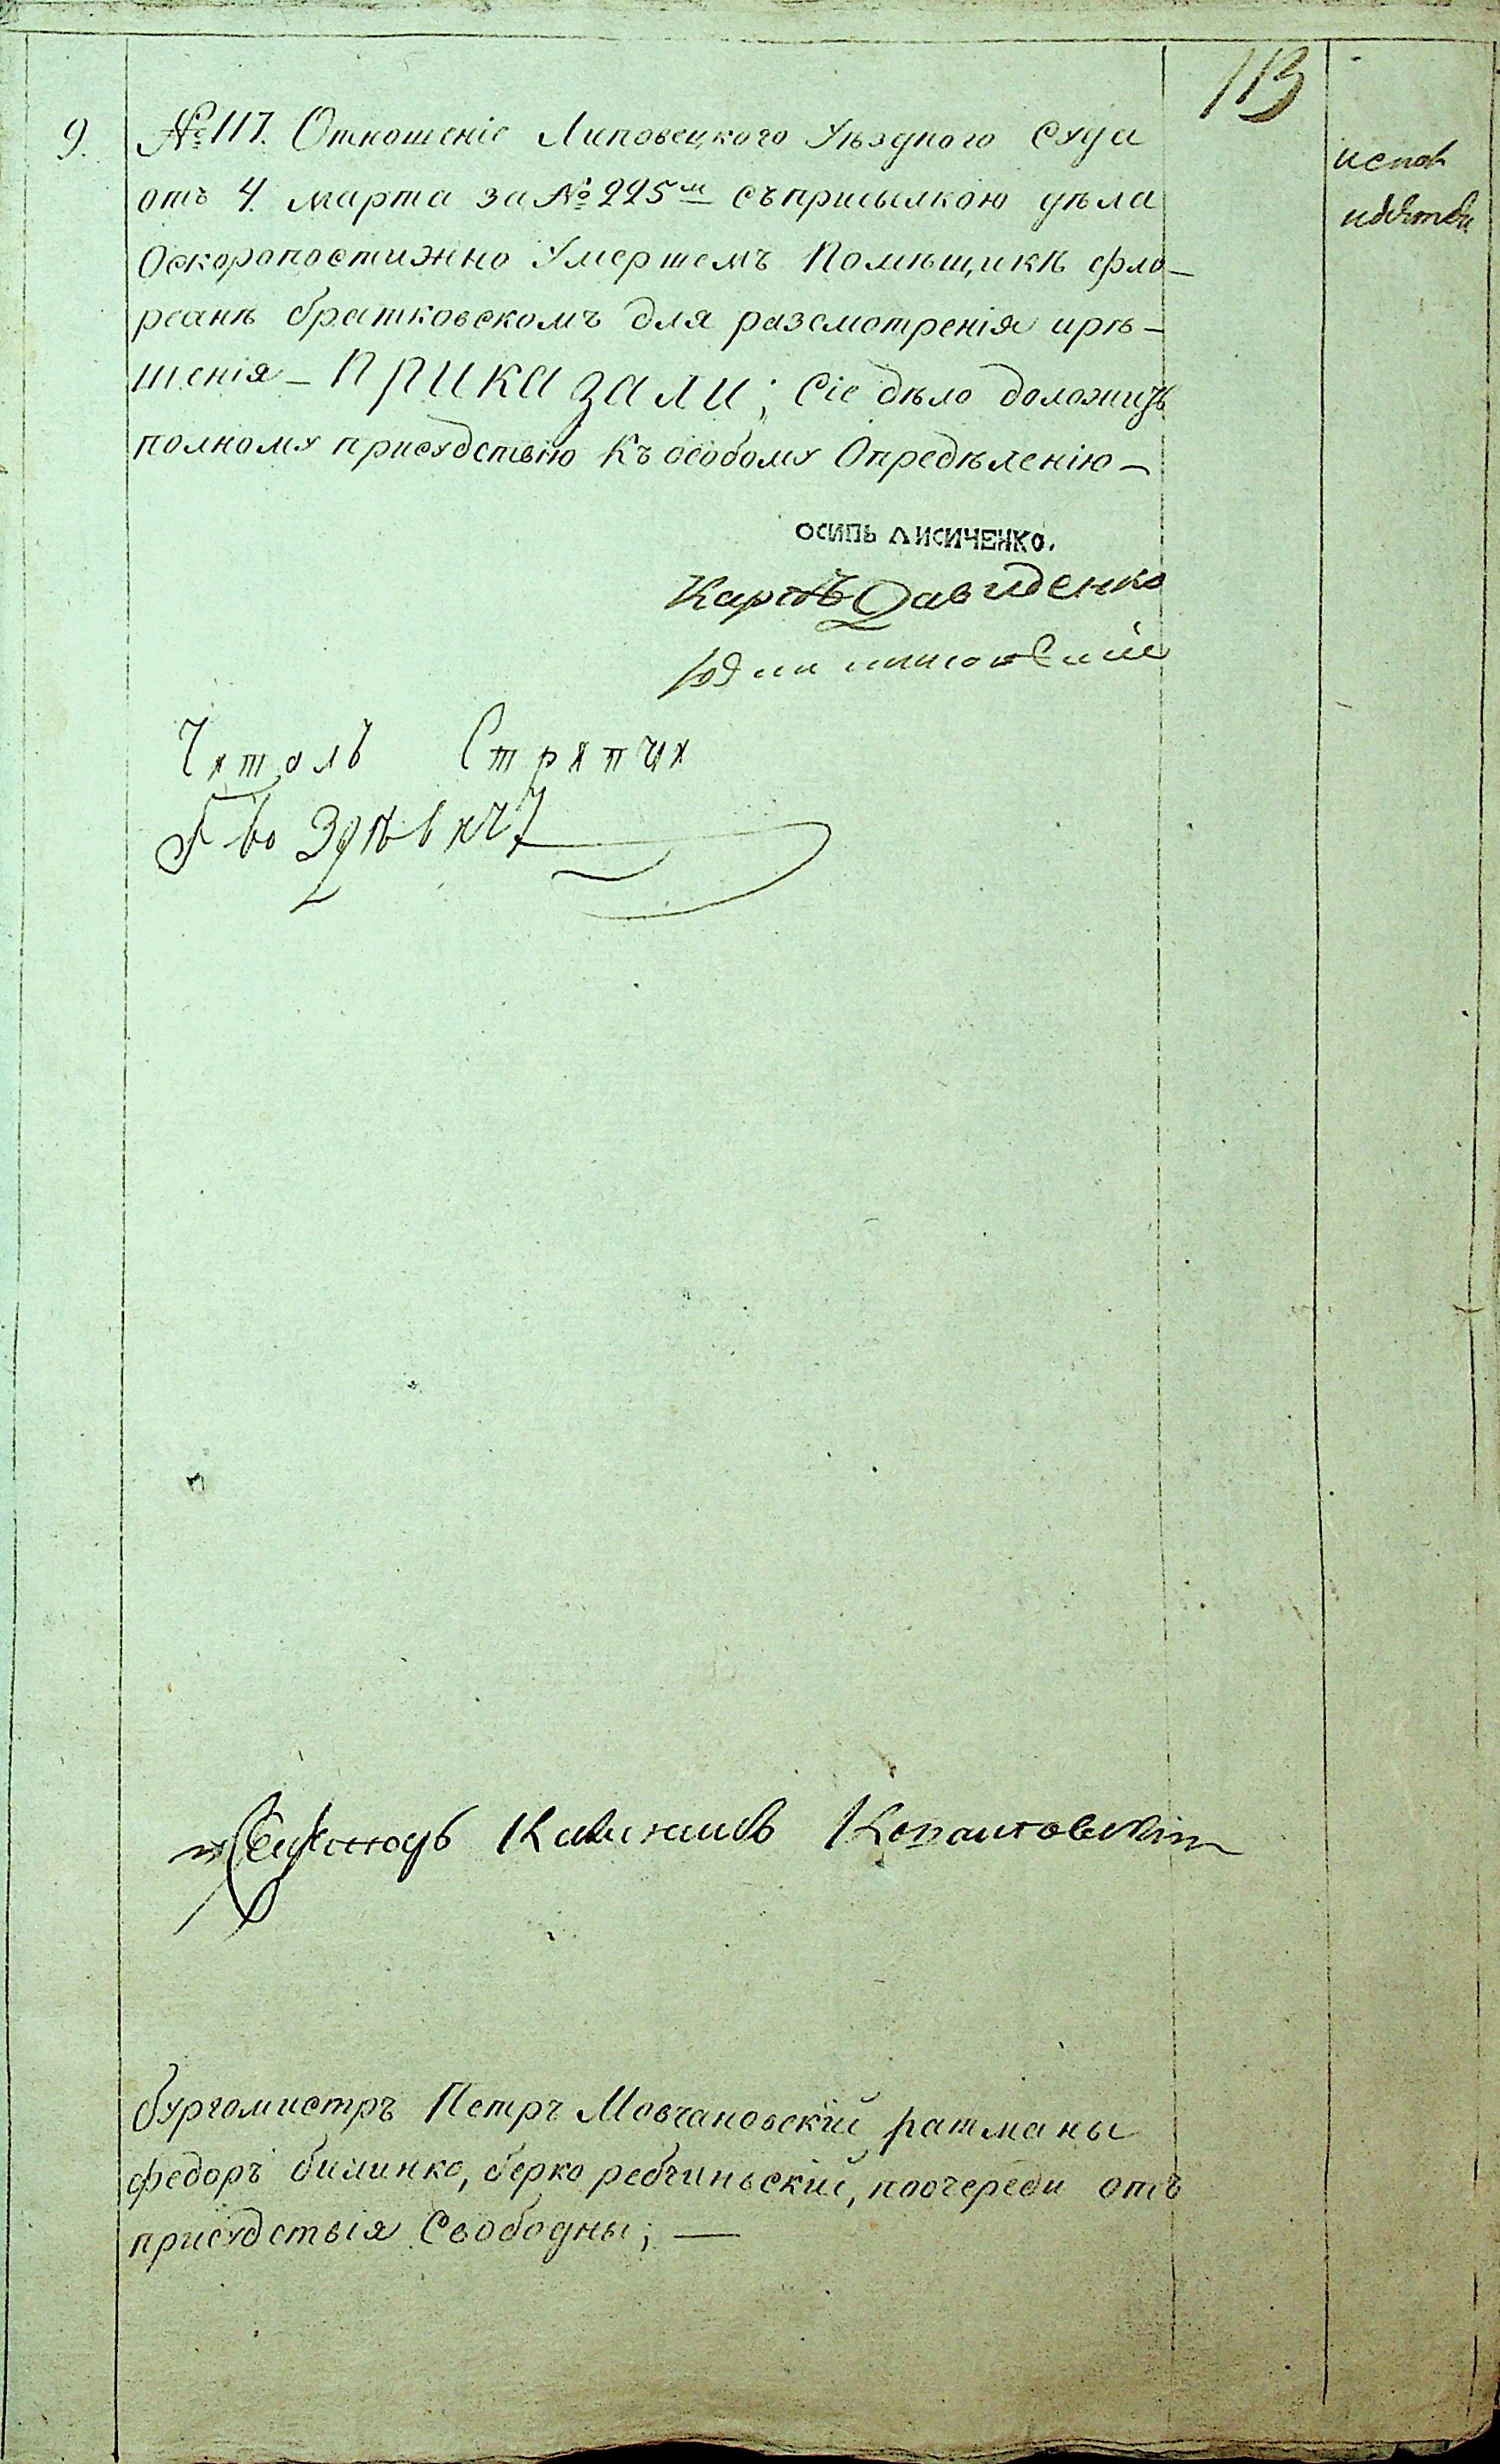 113
9. № 117. Отношеніе Липовецкого Уѣздного Суда
отъ 4. марта за № 225м съприсылкою дѣла
Оскоропостижно Умершемъ Помѣщикѣ Фло-
реанѣ братковскомъ для разсмотренія ирѣ-
шенія – Приказали; Сіе дѣло доложить
полному присудствію Къ особому Опредѣленію –
испол
осипъ лисиченко.
Карпъ Давиденко
Читалъ Стряпчи
Гвоздѣвичъ
бургомистръ Петръ Мовчановскій ратманы
федоръ билинко, берко ребчинъскій, поочереди отъ
присудствія Свободны; —